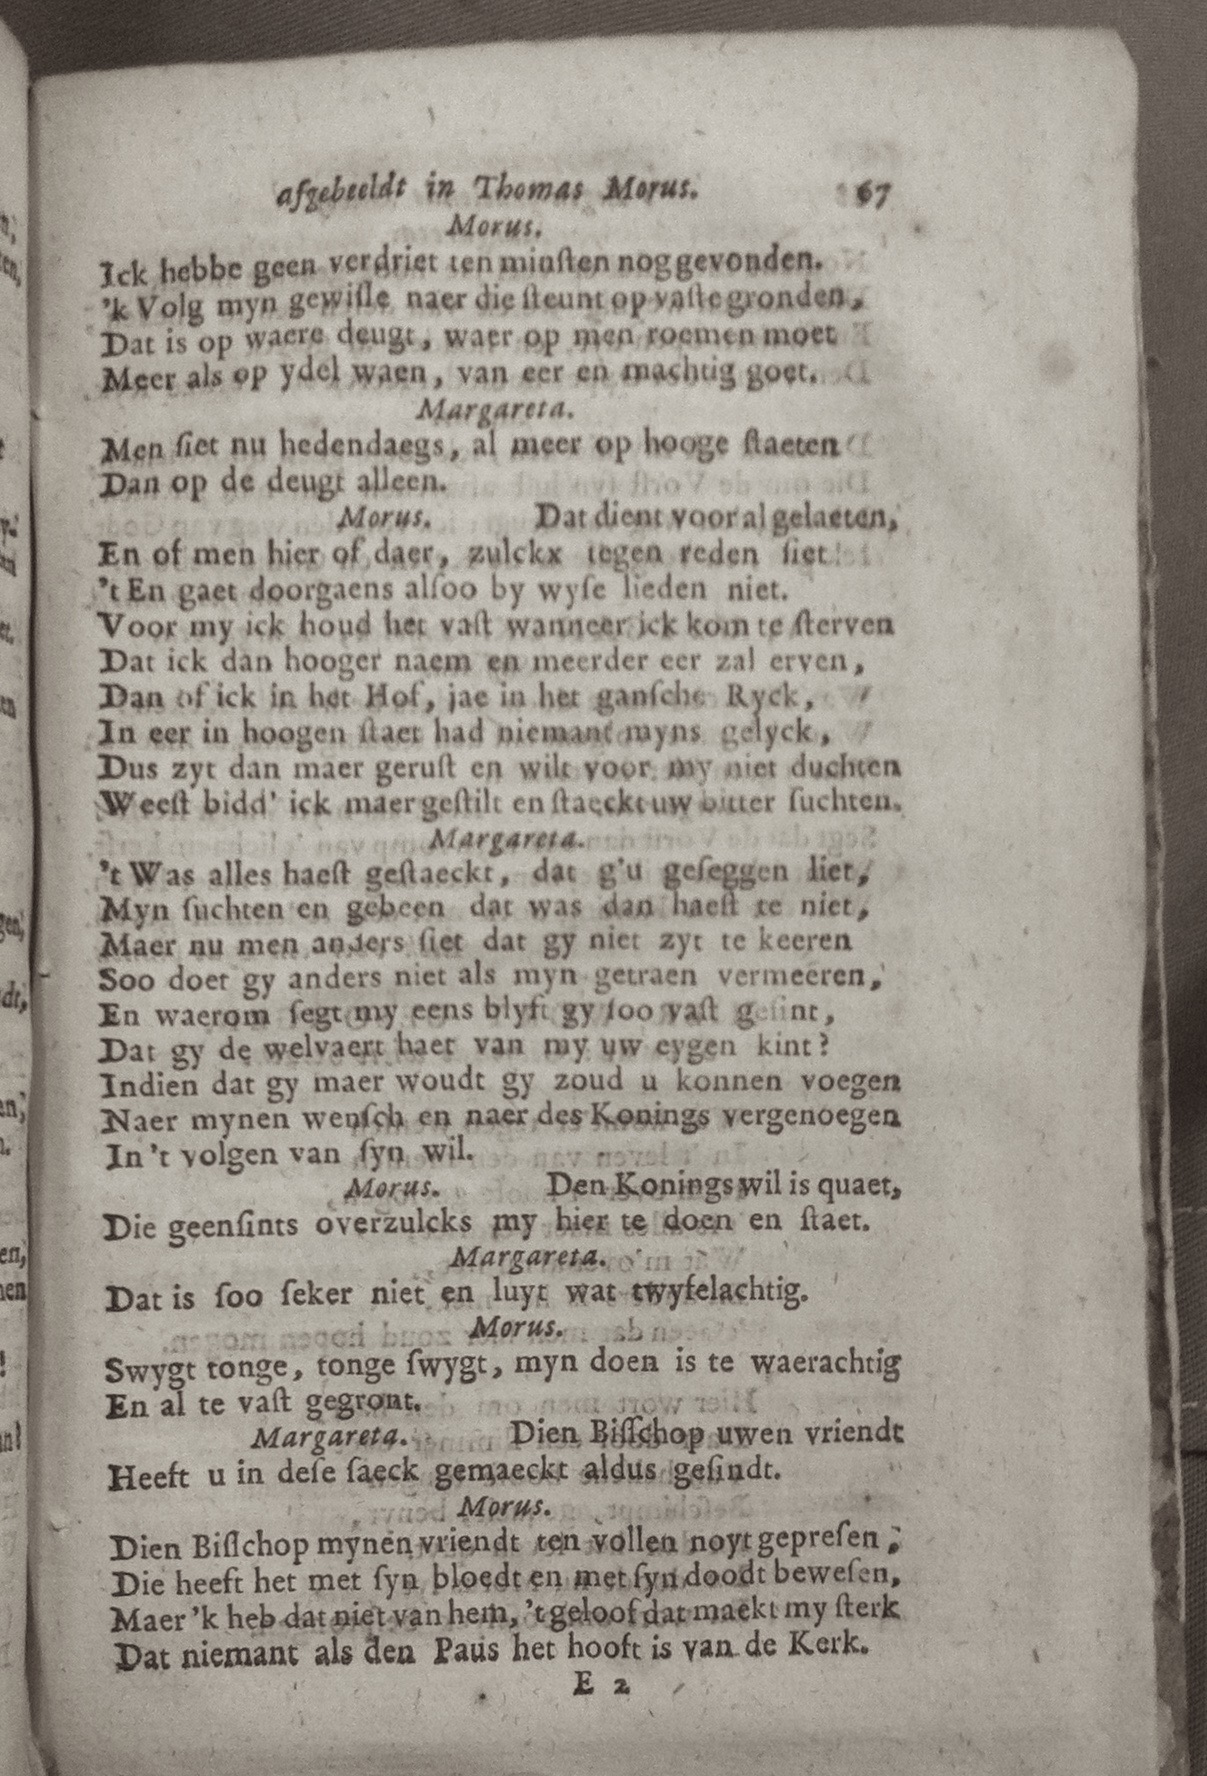 afgebeeldt in Thomas Morus. 67
Morus.
Ick hebbe geen verdriet ten minſten nog gevonden.
'k Volg myn gewiſſe naer die ſteunt op vaſte gronden,
Dat is op waere deugt, waer op men roemen moet
Meer als op ydel waen, van eer en machtig goet.
Margareta.
Men ſiet nu hedendaegs, al meer op hooge ſtaeten
Dan op de deugt alleen.
Morus. Dat dient voor al gelaeten,
En of men hier of daer, zulckx tegen reden ſiet
't En gaet doorgaens alſoo by wyſe lieden niet.
Voor my ick houd het vaſt wanneer ick kom te ſterven
Dat ick dan hooger naem en meerder eer zal erven,
Dan of ick in het Hof, jae in het ganſche Ryck,
In eer in hoogen ſtaet had niemant myns gelyck,
Dus zyt dan maer geruſt en wilt voor my niet duchten
Weeſt bidd' ick maer geſtilt en ſtaeckt uw bitter ſuchten.
Margareta.
't Was alles haeſt geſtaeckt, dat g'u geſeggen liet,
Myn ſuchten en gebeen dat was dan haeſt te niet,
Maer nu men anders ſiet dat gy niet zyt te keeren
Soo doet gy anders niet als myn getraen vermeeren,
En waerom ſegt my eens blyft gy ſoo vaſt geſint,
Dat gy de welvaert haet van my uw eygen kint?
Indien dat gy maer woudt gy zoud u konnen voegen
Naer mynen wenſch en naer des Konings vergenoegen
In 't volgen van ſyn wil.
Morus. Den Konings wil is quaet,
Die geenſints overzulcks my hier te doen en ſtaet.
Margareta.
Dat is ſoo ſeker niet en luyt wat twyfelachtig.
Morus.
Swygt tonge, tonge ſwygt, myn doen is te waerachtig
En al te vaſt gegront.
Margareta. Dien Biſſchop uwen vriendt
Heeft u in deſe ſaeck gemaeckt aldus geſindt.
Morus.
Dien Biſſchop mynen vriendt ten vollen noyt gepreſen;
Die heeft het met ſyn bloedt en met ſyn doodt beweſen,
Maer 'k heb dat niet van hem, 't geloof dat maekt my ſterk
Dat niemant als den Paus het hooft is van de Kerk.
E 2